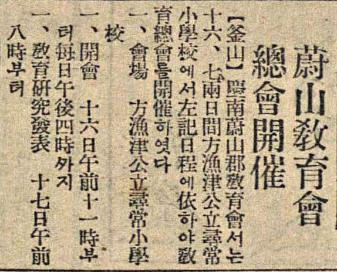 蔚山敎育會
總會開催
【釜山】慶南蔚山郡敎育會서는
十六、七兩日間方漁津公立尋常
小學校에서左記日程에依하야敎
育總會를開催하엿다
一、會場　方漁津公立尋常小學
校
一、開會　十六日午前十一時부
터每日午後四時까지
一、敎育硏究發表　十七日午前
八時부터